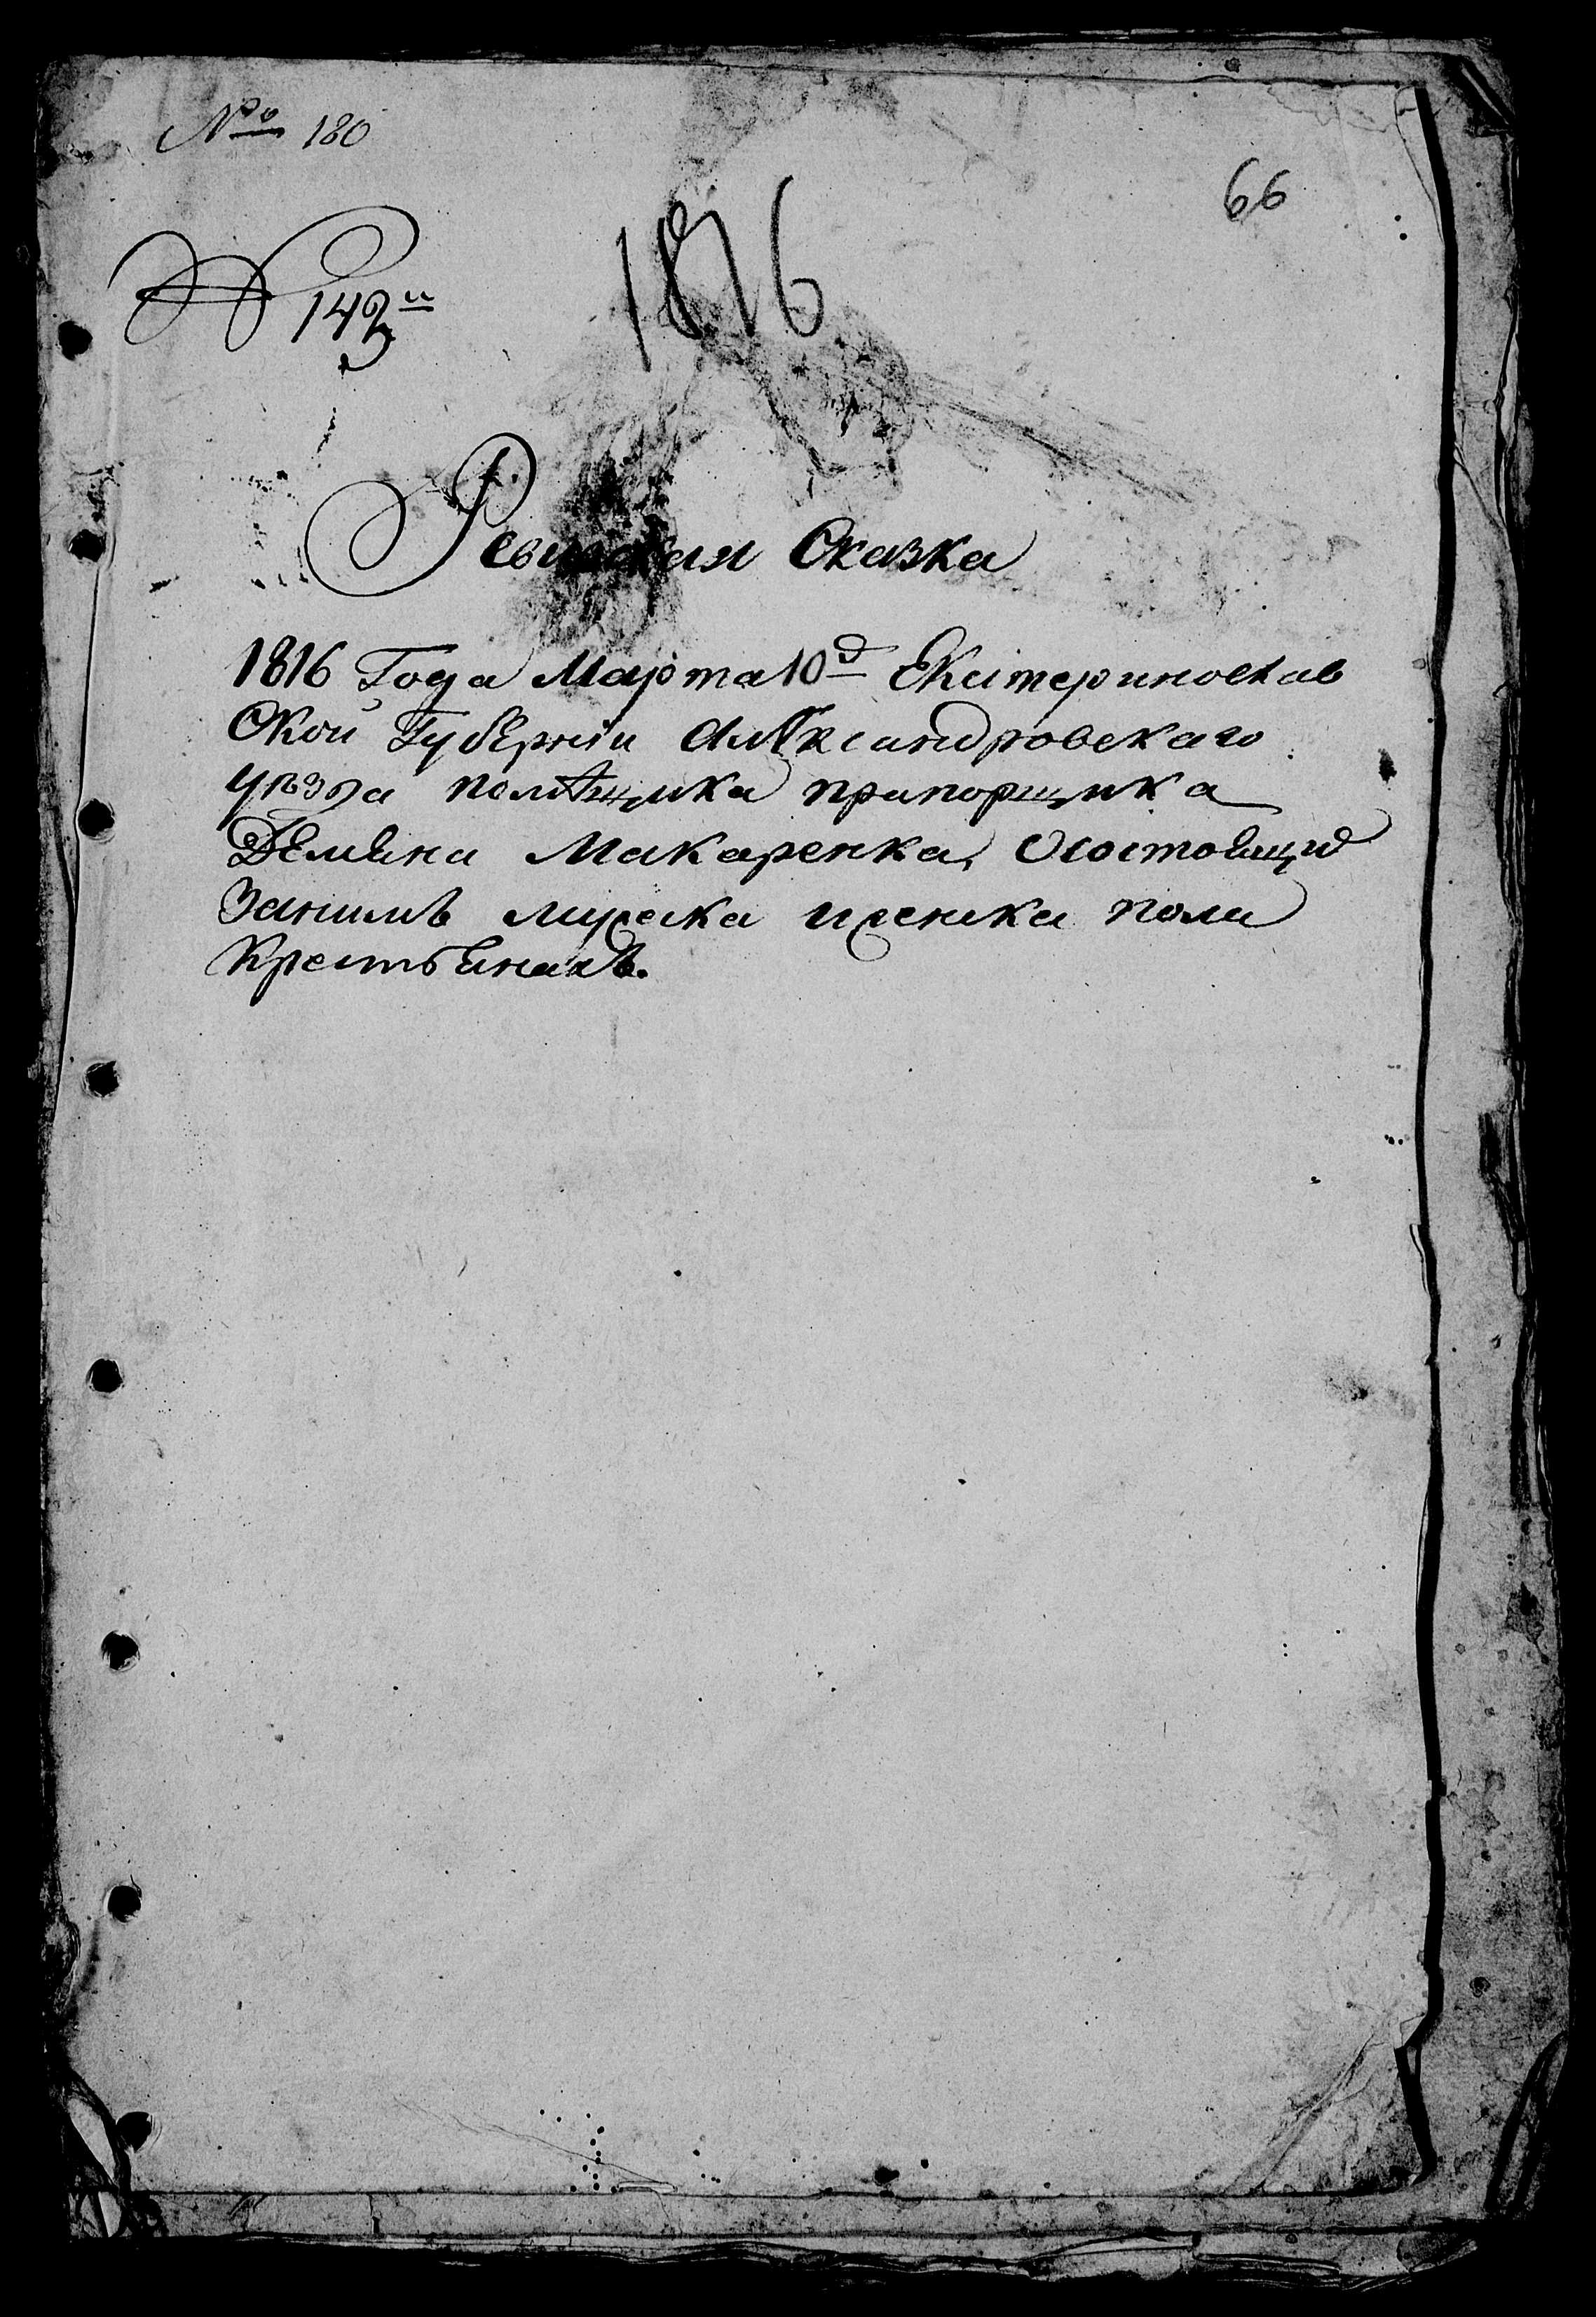 № 180
66
1816
№ 143й
Ревиская Сказка
1816 Года Марта 10д Екатеринослав
Ской Губернiи Александровскаго
уезда помѣщика прапорщика
Демяна Макаренка, Осостоящи
Занимъ муска иженска пола
Крестьянахъ.